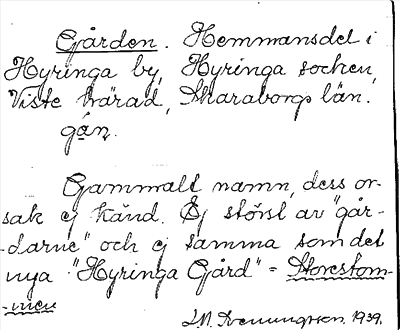 Gården. Hemmansdel i
Hyringa by, Hyringa socken,
Viste härad, Skaraborgs län.
gán.
Gammalt namn, dess or-
sak ej känd. Ej störst av "går-
-darne" och ej samma som det
nya "Hyringa Gård" = Storestom-
-men
1939.